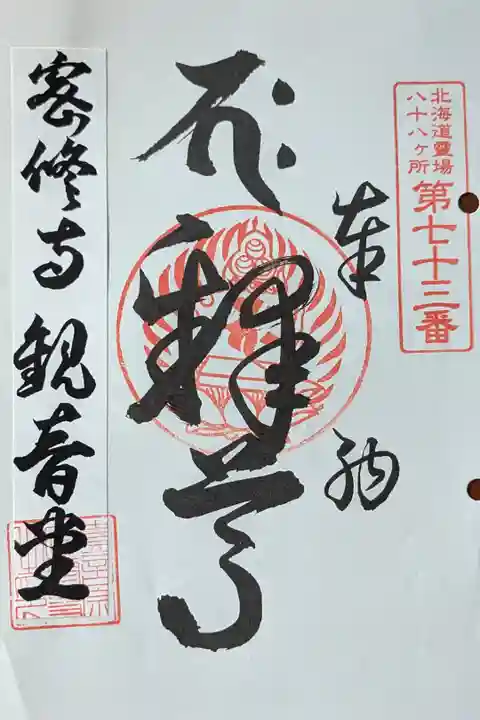 北海道霊場
八十八ヶ所
第七十三番
奉
納
釋尊
密修寺観音堂